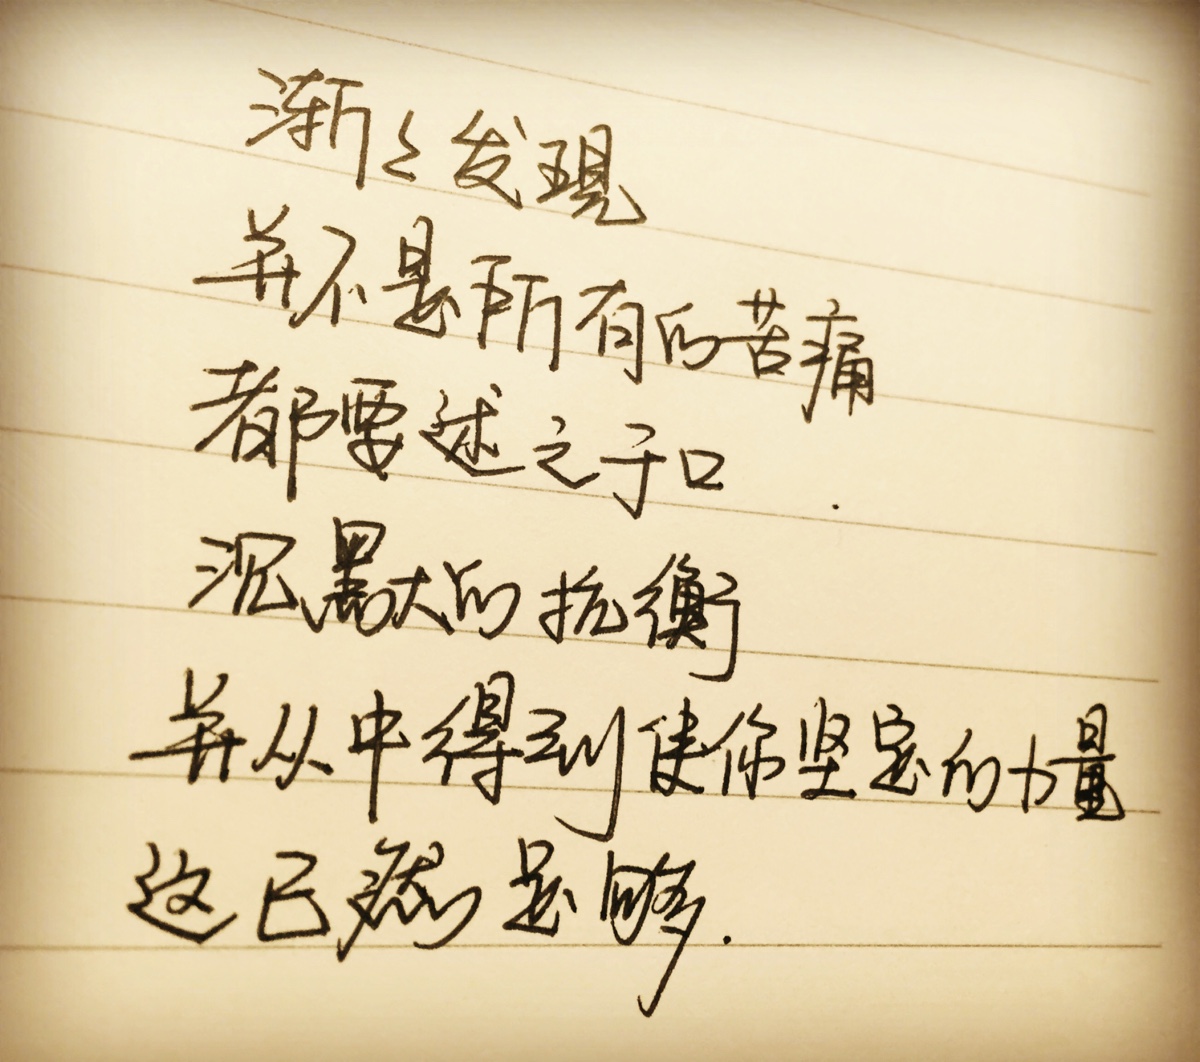 渐々发现
并不是所有的苦痛
都要述之于口
沉默的抗衡
并从中得到使你坚定的力量
这已然是够.